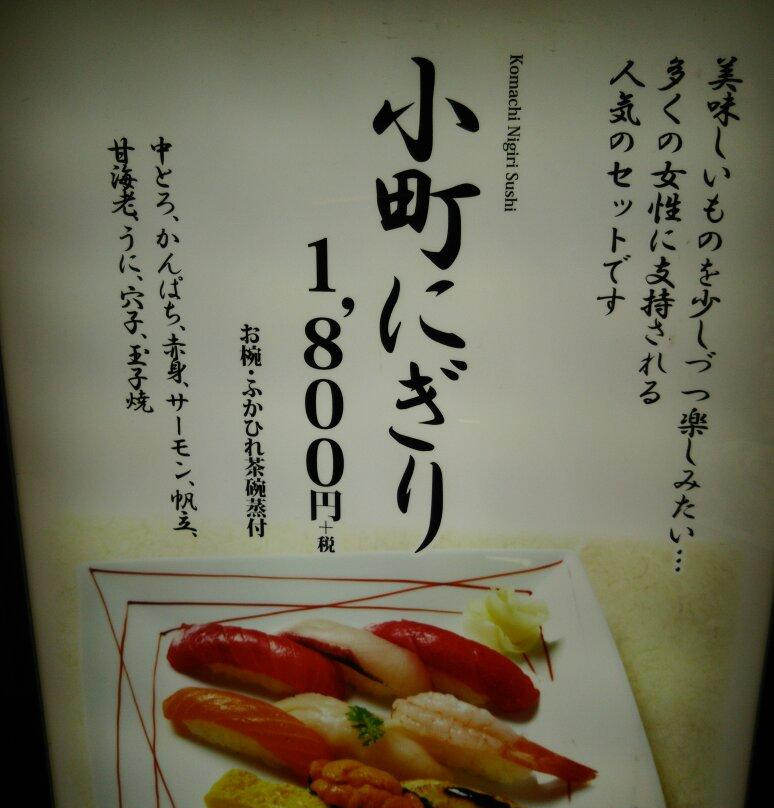 美味しいものを少しづつ楽しみたい…
多くの女性に支持される
人気のセットです
Komachi Nigiri Sushi
小町にぎり
1,800円+税
お椀・ふかひれ茶碗蒸付
中とろ、かんぱち、赤身、サーモン、帆立、
甘海老、うに、穴子、玉子焼